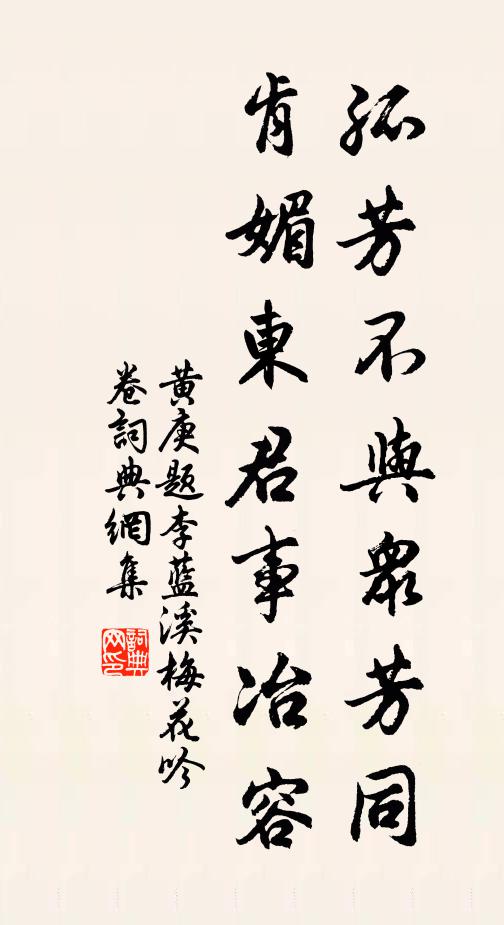 孤芳不與衆芳同
肯媚東君事冶容
黄庚题李藍溪梅花吟
卷詞典網集
詞典
网印